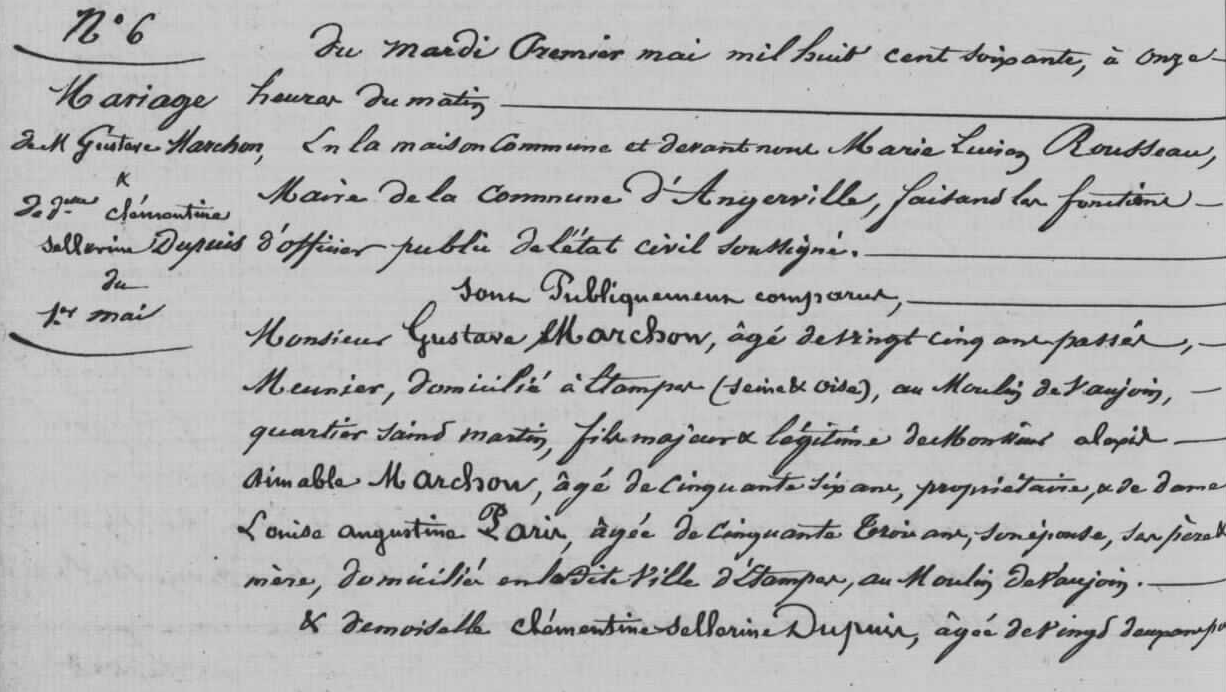 N° 6
Mariage
de M Gustave Marchon,
&
de dlle Clémentine
Sellerine Dupuis
du
1er mai
du mardi Premier mai mil huit cent soixante, à onze
heures du matin
En la maison Commune et devant nous Marie Lucien Rousseau,
Maire de la Commune d'Angerville, faisant les fonctions
d'officier public de l'état civil soussigné.
Sont Publiquement comparus,
Monsieur Gustave Marchon, âgé de vingt cinq ans passés,
Meunier, domicilié à Etampes (Seine & Oise), au Moulin de Vaujoin,
quartier saint martin, fils majeur & légitime de Monsieur alexis
aimable Marchon, âgé de cinquante six ans, propriétaire, & de dame
Louise augustine Paris, âgée de cinquante trois ans, son épouse, ses père &
mère, domicilié en la dite Ville d'Etampes, au Moulin de Vaujoin.
& demoiselle Clémentine Sellerine Dupuis, âgée de vingt deux ans